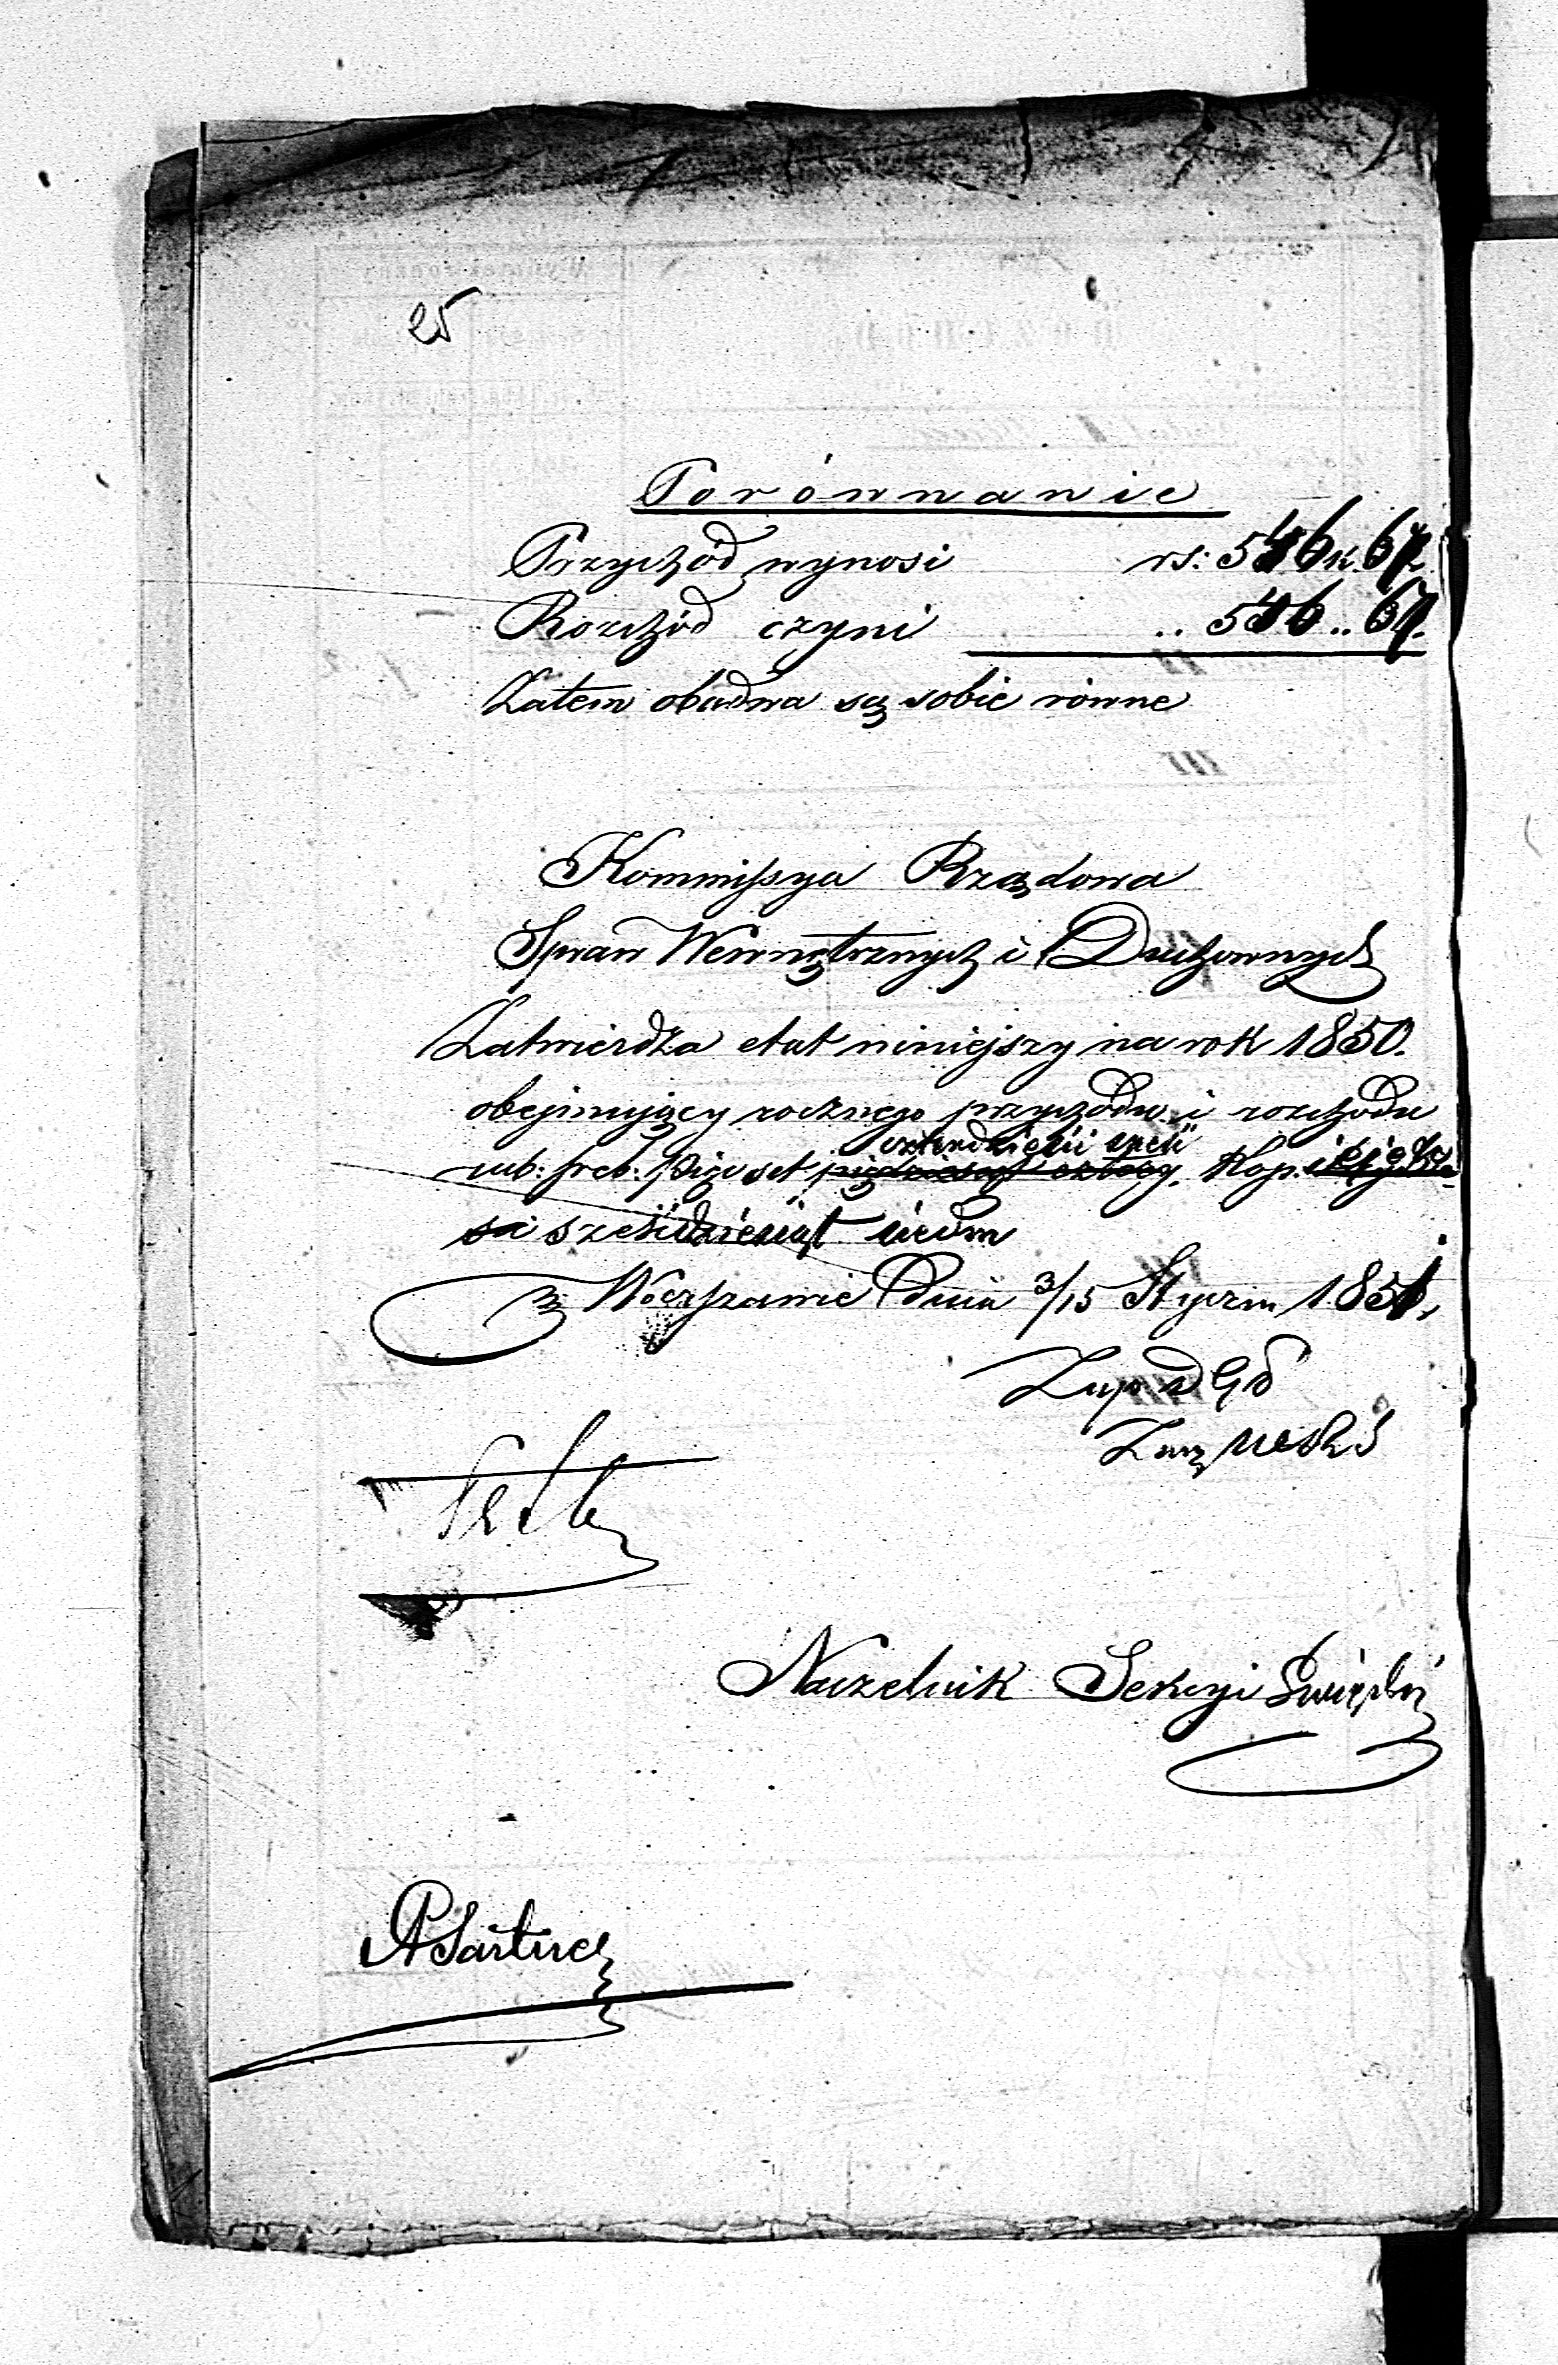 25
Porównanie
Przychód wynosi rs: 546 k. 67.
Rozchód czyni .. 546 .. 67.
Zatem obadwa są sobie równe
Kommissya Rządowa
Spraw Wewnętrznych i Duchownych
Zatwierdza etat niniejszy na rok 1850.
obejmujący rocznego przychodu i rozchodu
czterdzieści sześć
rub: sreb: Pięćset pięćdziesiąt cztery. Kop:
sześćdziesiąt siedm
w Warszawie Dnia 3/15 Stycznia 1851.
Naczelnik Sekcyi